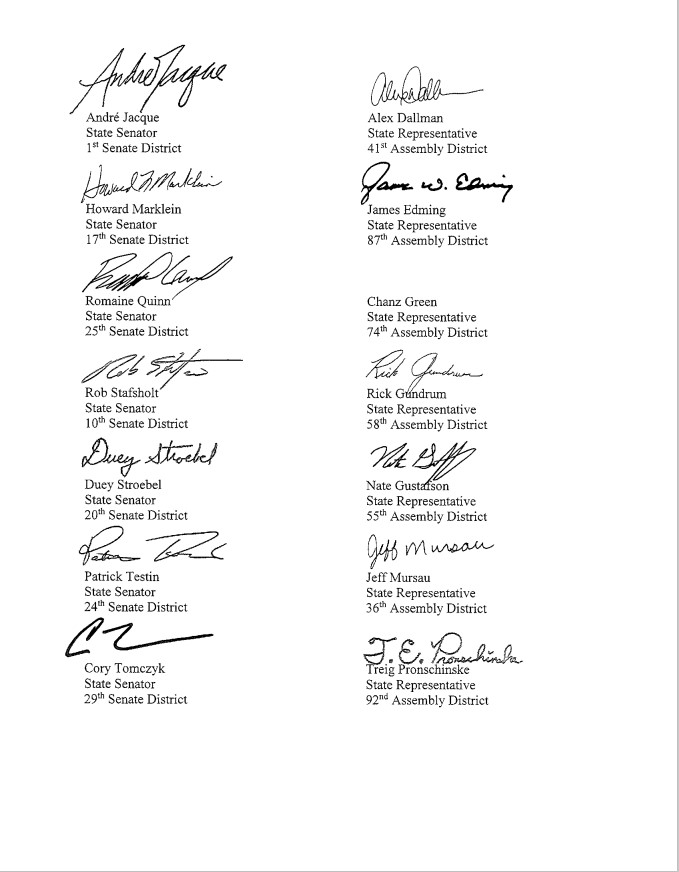 André Jacque
André Jacque
State Senator
1st Senate District
Howard Marklein
Howard Marklein
State Senator
17th Senate District
Romaine Quinn
State Senator
25th Senate District
Rob Stafsholt
Rob Stafsholt
State Senator
10th Senate District
Duey Stroebel
Duey Stroebel
State Senator
20th Senate District
Patrick Testin
State Senator
24th Senate District
Cory Tomczyk
State Senator
29th Senate District
Alex Dallman
Alex Dallman
State Representative
41st Assembly District
James W. Edming
James Edming
State Representative
87th Assembly District
Chanz Green
State Representative
74th Assembly District
Rick Gundrum
Rick Gundrum
State Representative
58th Assembly District
Nate Gustafson
State Representative
55th Assembly District
Jeff Mursau
Jeff Mursau
State Representative
36th Assembly District
T.E. Pronschinske
Treig Pronschinske
State Representative
92nd Assembly District